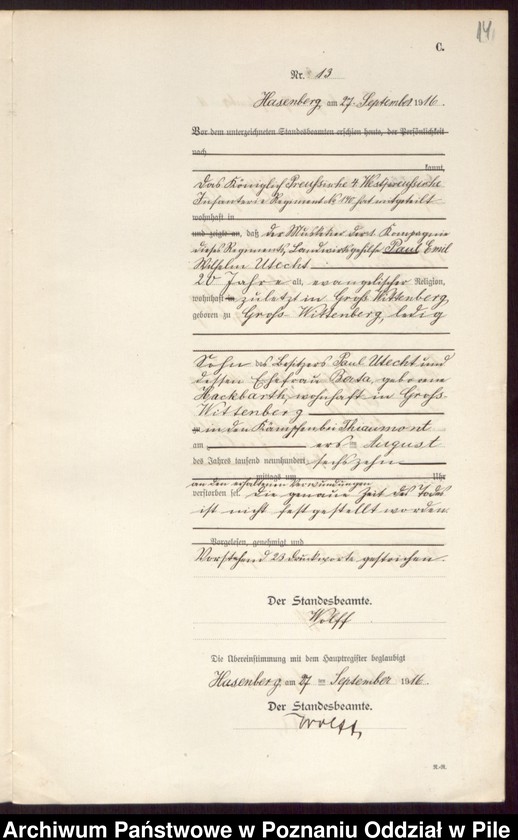 14
C.
Nr. 13
Hasenberg, am 27. September 1916.
Vor dem unterzeichneten Standesbeamten erschien heute, der Persönlichkeit
nach
kannt,
Das Königlich Preußische 4. Westpreußische
Infanterie Regiment № 140 hat mitgeteilt
wohnhaft in
und zeigte an, daß der Musketier der 1. Kompagnie
dieses Regiments, Landwirtgehilfe Paul Emil
Wilhelm Utecht
20 Jahre alt, evangelischer Religion,
wohnhaft in zuletzt in Groß Wittenberg,
geboren zu Groß-Wittenberg, ledig
Sohn des Besitzers Paul Utecht und
dessen Ehefrau geborene
Hackbarth, wohnhaft in Groß-
Wittenberg
zu in den Kämpfen bei Thiaumont
am ten August
des Jahres tausend neunhundert sechszehn
mittags um Uhr
an den erhaltenen Verwundungen
verstorben sei. Die genaue Zeit des Todes
ist nicht festgestellt worden.
Vorgelesen, genehmigt und
Vorstehend 23 Druckworte gestrichen.
Der Standesbeamte.
Wolff
Die Übereinstimmung mit dem Hauptregister beglaubigt
Hasenberg, am 27 ten September 1916.
Der Standesbeamte.
Wolff
R.-R.
Archiwum Państwowe w Poznaniu Oddział w Pile